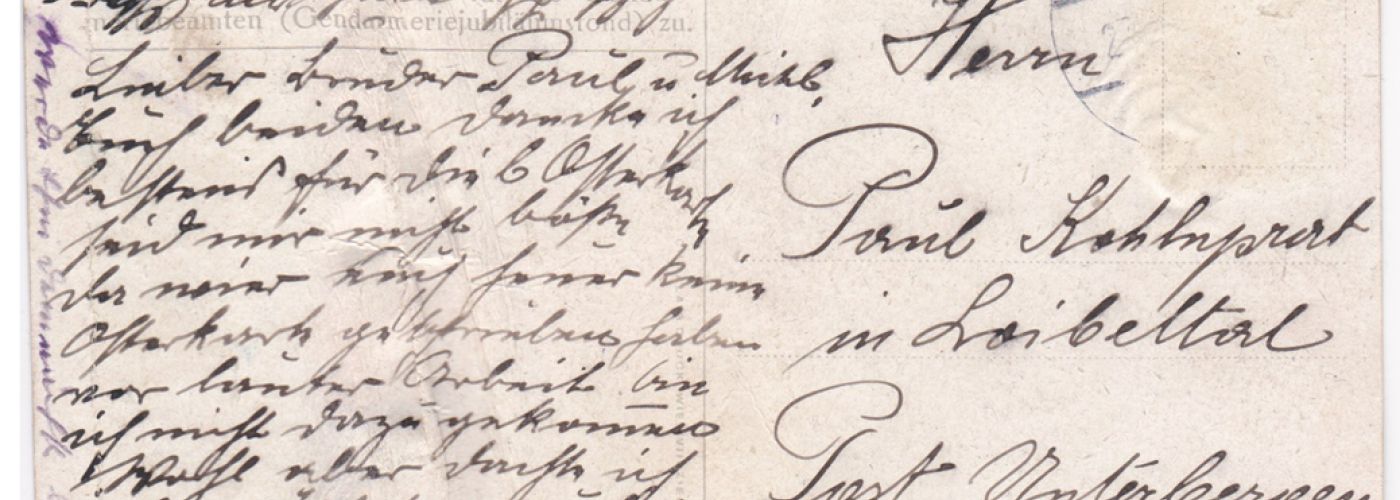 meriebeamten (Gendarmeriejubiläumsfond) zu.
Lieber Bruder Paul u Michl,
Euch beiden dancke ich
bestens für die b Osterkarte
seid mir nicht böße
da wier Euch heuer keine
Osterkarte geschrieben haben
vor lauter Arbeit bin
ich nicht dazu gekomen
Wohl aber dachte ich
Herrn
Paul Kohlnprat
in Loibeltal
Post Unterbergen